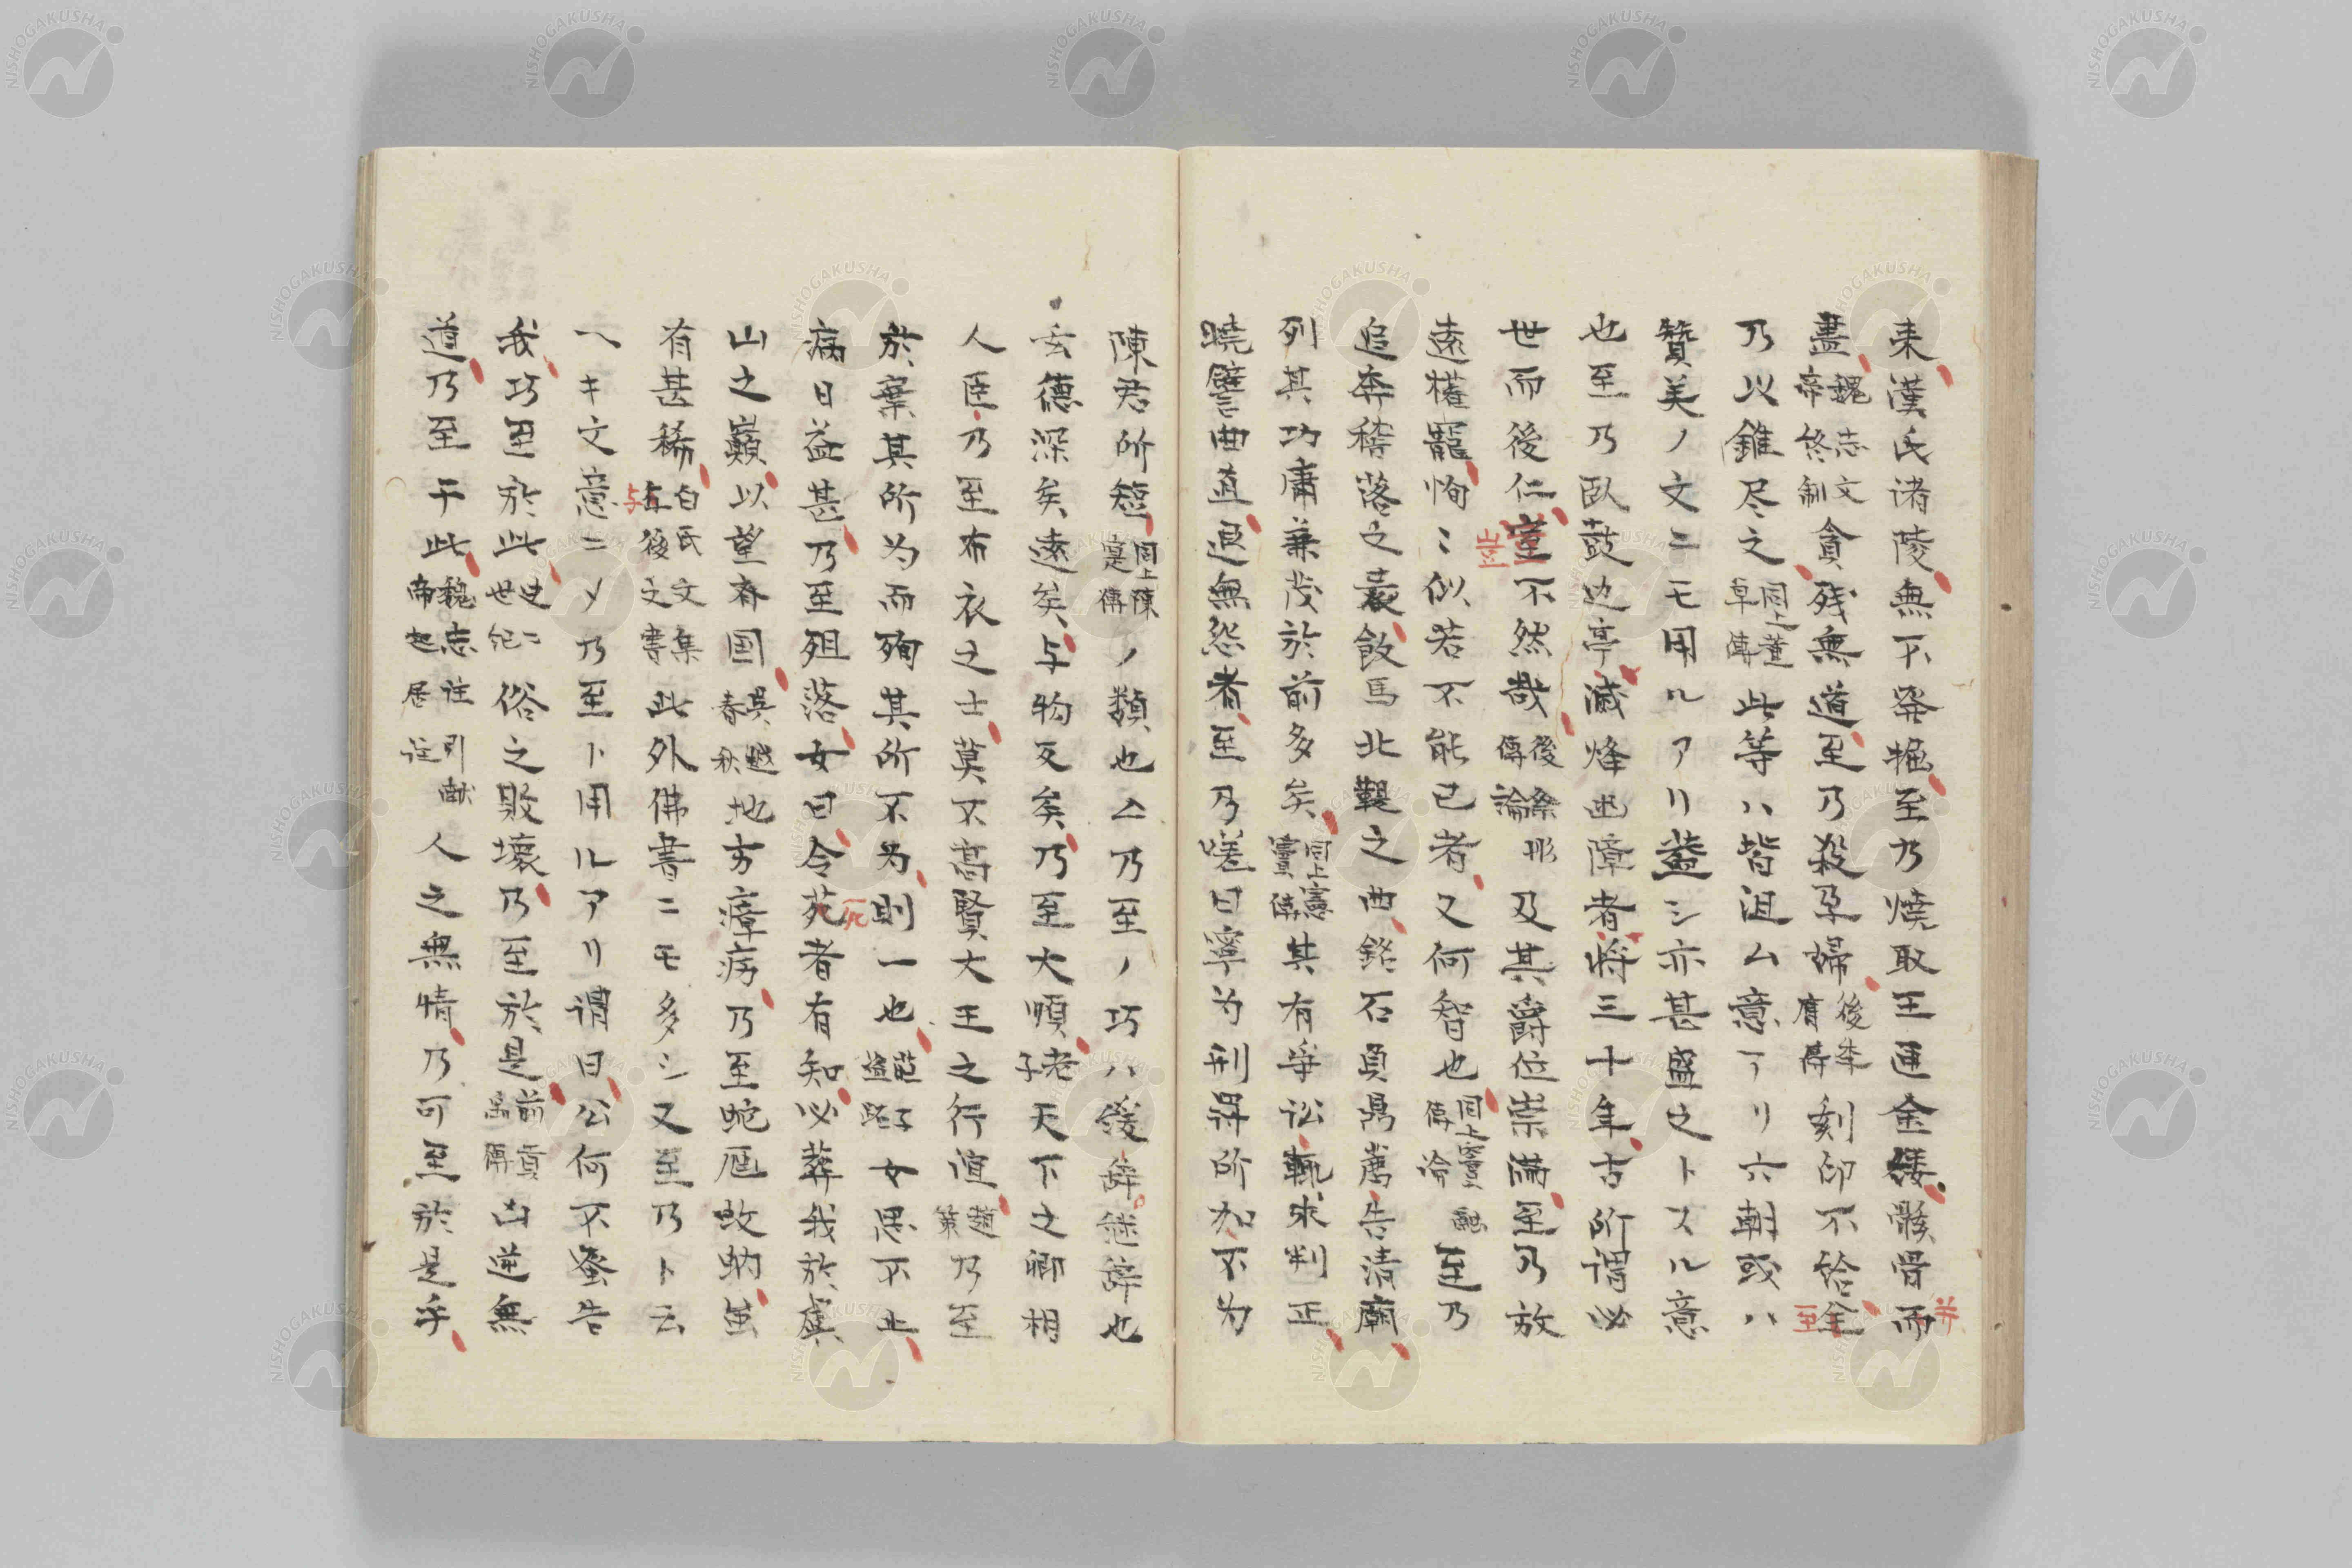 来漢氏諸陵無不発掘至乃焼取玉匣金縷骸骨而并
盡魏志文帝終制貪残無道至乃殺孕婦後李膺傳刻印不給至乃以錐
乃以錐尽之同上董卓傳此等ハ皆沮ム意アリ六朝或ハ
賛美ノ文ニモ用ルアリ蓋シ亦甚盛之トスル意
也至乃臥鼓边亭滅烽幽障者将三十年古所謂必
世而後仁豈不然哉後祭肜傳論及其爵位崇満至乃放
遠権寵恂〻似若不能已者又何智也同上竇融傳論至乃
追奔稽落之表飲馬北鞮之曲銘石負鼎薦告清廟
列其功庸兼茂於前多矣同上竇憲傳其有争訟輒求判正
暁譬曲直退無怨者至乃嗟曰寧为刑罸所加不为
陳君所短同上陳寔傳ノ類也ム乃至ノ巧ハ後辞継辞也
玄徳深矣遠矣与物反矣乃至大順老子天下之卿相
人臣乃至布衣之士莫不高賢大王之行谊趙策乃至
於棄其所为而殉其所不为則一也荘子盗跖女思不止
病日益甚乃至殂落女曰令死者有知必葬我於虞
山之巓以望斉国吳越春秋地方瘴病乃至蛇虺蚊蚋虽
有甚稀白氏文集与友後之書此外佛書ニモ多シ又至乃ト云
ヘキ文意ニメ乃至ト用ルアリ謂曰公何不蚤告
我巧至於此史世紀二俗之敗壊乃至於是前貢禹傳凶逆無
道乃至于此魏志注引献帝起居注人之無情乃可至於是乎